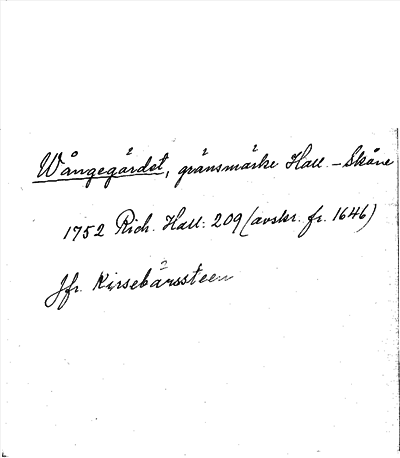 Wångegärdet, gränsmärke Hall. – Skåne
1752 Rich. Hall: 209 (avskr. fr. 1646)
Jfr. Kirsebärssteen